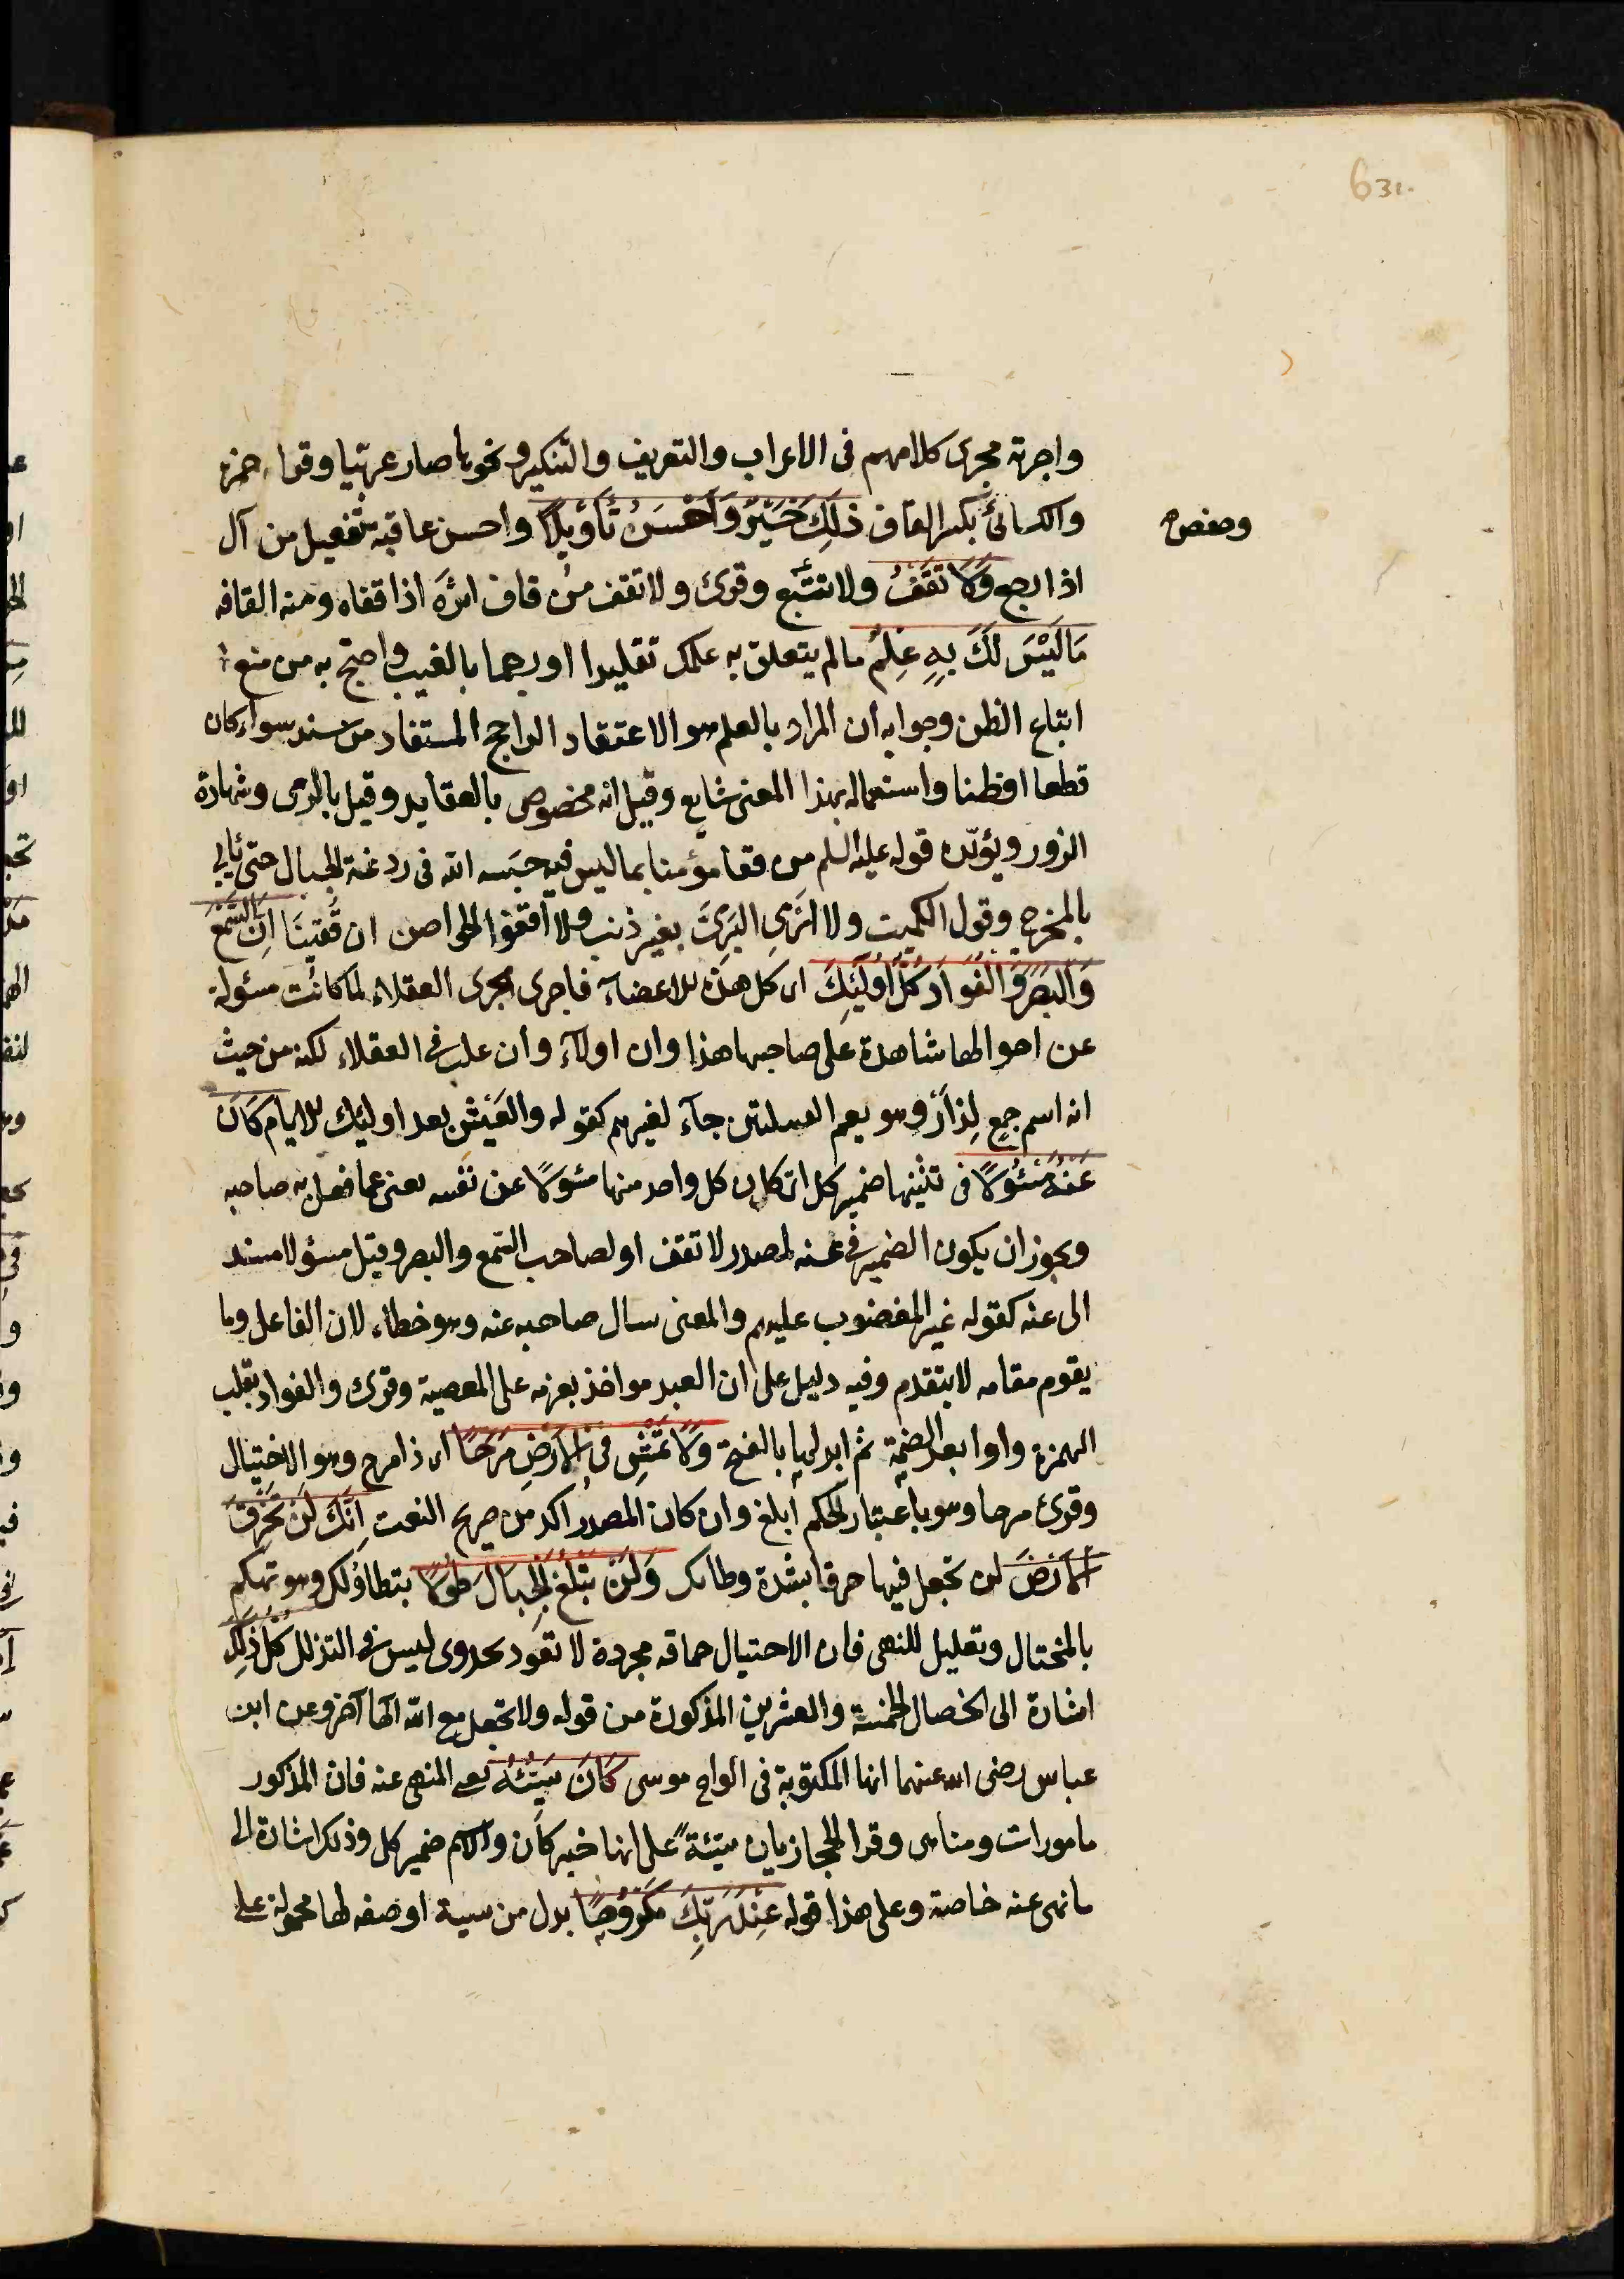 631.
واجرته مجرى كلامهم فى الاعراب والتعريف والتنكير ونحوها صار عربيّا وقراء حمزه
والكسائىّ بكسر القاف ذَلِكَ خَيْرٌ وَاَحْسَنُ تَأْوِيْلًا واحسن عاقبة تفعيل من آل
وحفص
اذا رجع وَلَا تَقْفُ ولا تتبّع وقرئ ولا تقف من قاف اثرَه اذا قفاه ومنه القافه
مَا لَيْسَ لَكَ بِهِ عِلْمٌ ما لم يتعلق به علمك تقليدا او رجما بالغيب واحتج به من منع
اتباع الظن وجوابه أن المراد بالعلم هو الاعتقاد الراجح المستفاد من سند سواء كان
قطعا او ظنا واستعماله بهذا المعنى شايع وقيل انه مخصوص بالعقايد وقيل بالرمى وشهادة
الزور ويؤيّده قوله عليه السلم من قفا مؤمنا بما ليس فيه حبَسه الله فى ردغة الخبال حتى يأتى
بالمخرج وقول الكميت ولا ارْمِى البَرِئَ بغير ذنب ولا اَقفوا الحواصن ان قُفِينَا اِنَّ السَّمْعَ
وَالْبَصَرَ وَالْفُوَادَ كُلُّ اُولَئِكَ اى كل هذه الاعضاء فاجرى مجرى العقلاء لما كانت مسئولة
عن احوالها شاهدة على صاحبها هذا وان اولآء وأن غلب فى العقلاء لكنه من حيث
انه اسم جمع لِذا وهو يعم القبيلتين جآء لغيرهم كقوله والعَيْش بعد اولئك الايام كَانَ
عَنْهُ مَسْئُوْلًا فى ثلثها ضمير كل اى كان كل واحد منها مسئولًا عن نفسه يعنى عما فعل به صاحبه
ويجوز ان يكون الضمير فى عنه لمصدر لا تقف او لصاحب السّمع والبصر وقيل مسؤلا مسند
الى عنه كقوله غير المغضوب عليهم والمعنى يسال صاحبه عنه وهو خطاء لان الفاعل وما
يقوم مقامه لا يتقدم وفيه دليل على ان العبد مواخذ بعزمه على المعصية وقرئ والفواد بقلب
الهمزة واوا بعد الضمّة ثم ابدالها بالفتح وَلَا تَمْشِ فِى الْاَرْضِ مَرَحًا اى ذا مرح وهو الاختيال
وقرئ مرحا وهو باعتبار الحكم ابلغ وان كان المصدر اكد من صريح النعت اِنَّكَ لَنْ تَخْرِقَ
الْاَرْضَ لن تجعل فيها خرقا بشدة وطاتك وَلَنْ تَبْلُغَ الْجِبَالَ طُوْلًا بتطاؤلك وهو تهكم
بالمختال وتعليل للنهى فان الاختيال حماقه مجردة لا تعود بجدوى ليس فى التذلل كُلُّ ذَلِكَ
اشارة الى الخصال الخمسة والعشرين المذكورة من قوله ولا تجعل مع الله الٰها آخر وعن ابن
عباس رضى الله عنهما انها المكتوبة فى الواح موسى كَانَ سَيِّئُهُ يعنى المنهى عنه فان المذكور
مامورات ومناهى وقرا الحجازيان سيّئةً على انها خبر كان والاسم ضمير كل وذلك اشارة الى
ما نهى عنه خاصة وعلى هذا قوله عِنْدَ رَبِّكَ مَكْرُوْهًا بدل من سيئة او صفه لها محمولة على